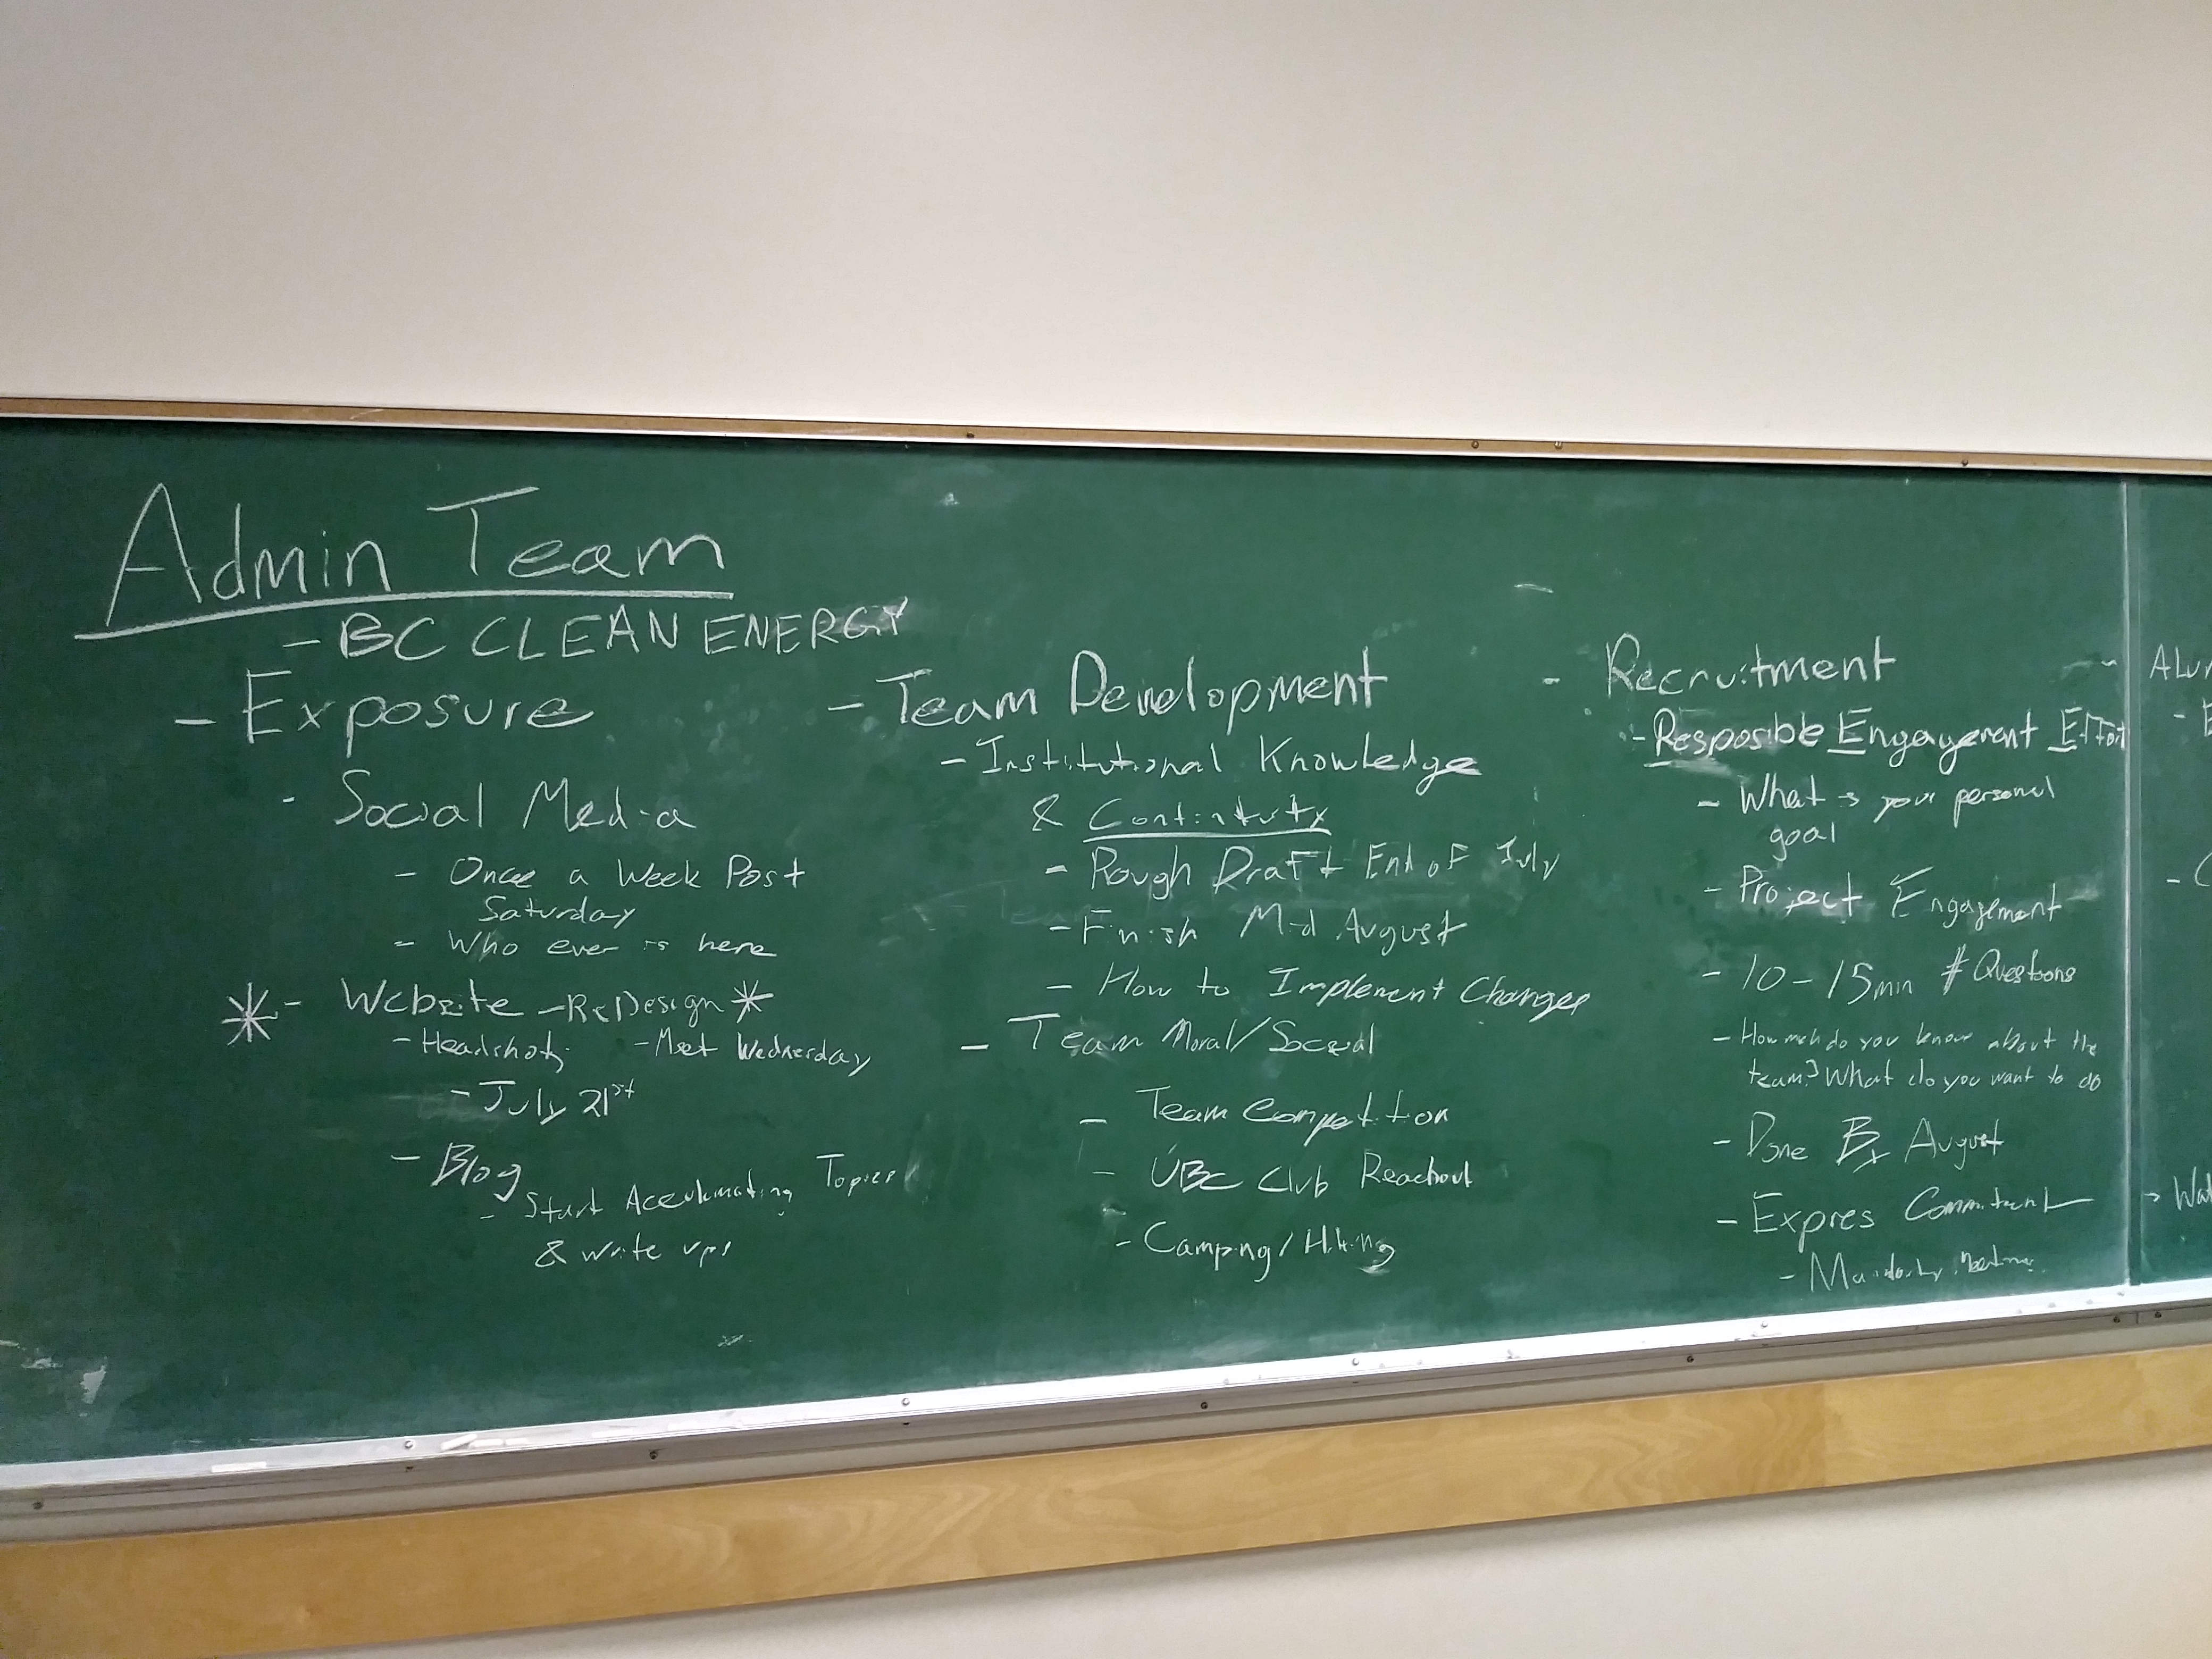 Admin Team
- BC CLEAN ENERGY
- Exposure
- Social Media
- Once a Week Post
Saturday
- Who ever is here
* - Website - ReDesign *
- Headshots - Meet Wednesday
- July 21st
- Blog
- Start Accumulating Topics
& write ups
- Team Development
- Institutional Knowledge
& Continuity
- Rough Draft End of July
- Finish Mid August
- How to Implement Changes
- Team Moral/Social
- Team Competition
- UBC Club Reachout
- Camping/Hiking
- Recruitment
- Resposible Engagement Effort
- What is your personal
goal
- Project Engagement
- 10-15min # Questions
- How much do you know about the
team? What do you want to do
- Done By August
- Expres Commitment
- Mandatory Meetings